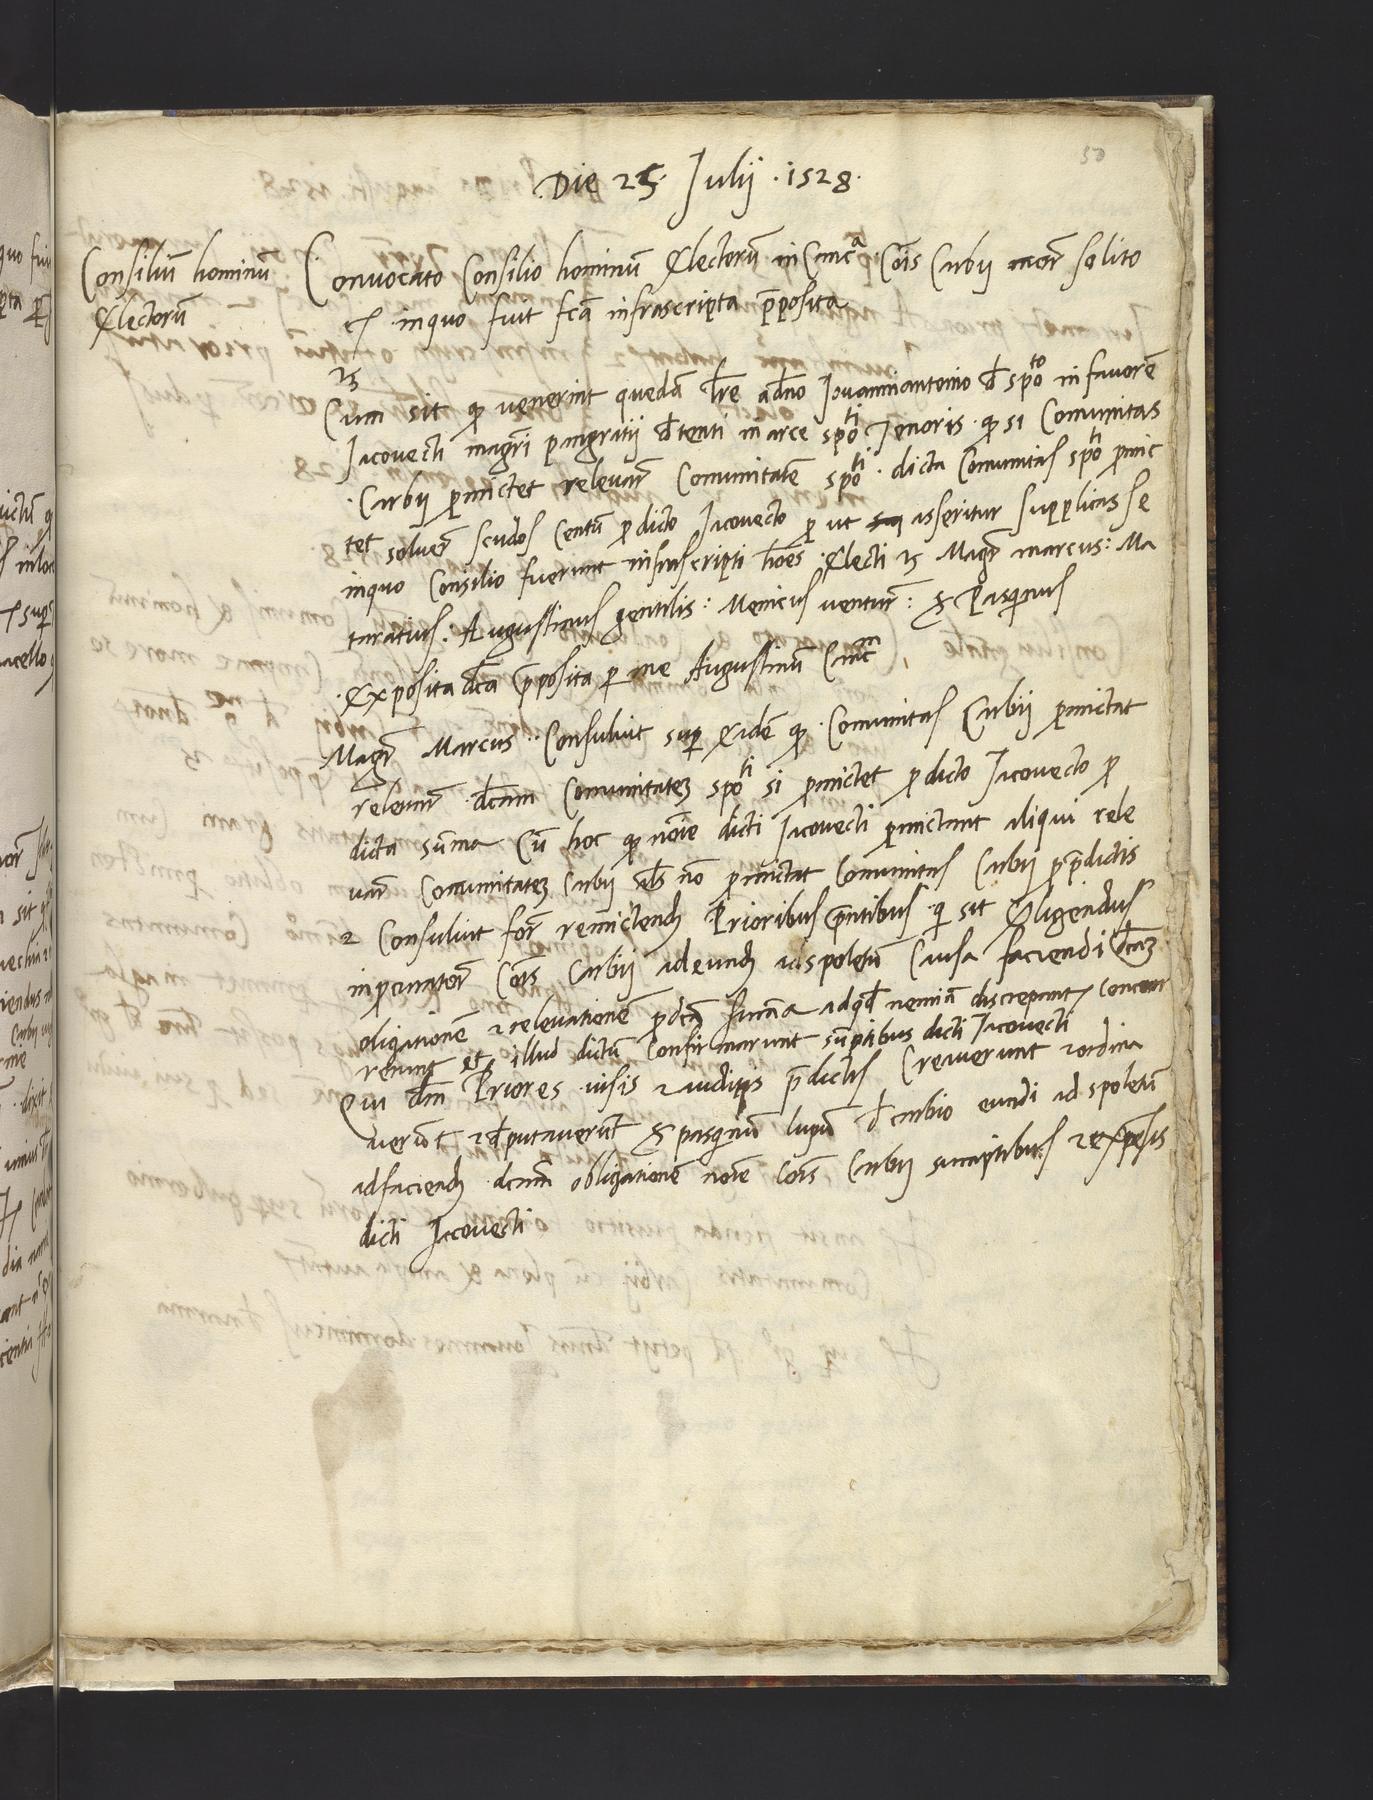 50
Die 25 Julij · 1528 ·
Consiliũ hominũ
Electorũ
Convocato Consilio hominũ Electorũ in Cancᵃ Cõis Carbij mor̃ solito
inquo fuit fcã infrascripta p̃posita
Cum sit qp venerint quedã l̃re ad dno Jovanniantonio d̃ spõto infavorẽ
Jacovecti magr̃i pangratij d̃tenti in arce spõti Tenoris qp si Comunitas
Carbij pmictet relevar̃ Comunitatẽ spõti · dicta Comunitas spõti pmic
tet solver̃ scudos Centũ p dicto Jacovecto p ut asseritur supplicas se
inquo Consilio fuerunt infrascripti hões Electi Magr̃ marcus: Ma
turatius: Augustinus gentilis: Menicus ventur̃: & Pasquinus
Exposita dc̃a p̃posita p me Augustinũ Canc̃m
Magr̃ Marcus Consuluit sup eadẽ qp Comunitas Carbij pmictat
relevar̃ dc̃am Comunitatez spõti si pmictet p dicto Jacovecto p
dicta sum̃a Cũ hoc qp noĩe dicti Jacovecti pmictant aliqui rele
var̃ Comunitatez Carbij als nõ pmictat Comunitas Carbij p p̃dictis
2 Consuluit for̃ remictend Prioribus p̃ntibus qi sit Eligendus
in pcuratorẽ Cõis Carbij ad eund ad spoletũ Causa faciendi dc̃az
obligationẽ 2 relevationẽ pdc̃ã adqd nemiã discrepant Concur
rerunt et illud dictũ Confirmarunt sumptibus dicti Jacovecti
Qui dn̄i Priores visis 2 auditis p̃dictis Creuerunt 2 ordina
verũt 2 d̃putaverũt & pasquinũ lupũ d̃ carbio eundi ad spoletũ
ad faciend dcam̃ obligationẽ noĩe Cõis Carbij sumptibus 2 expesis
dicti Jacovecti